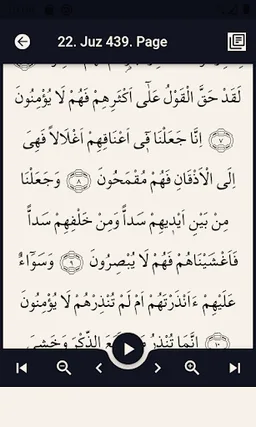 22. Juz 439. Page
لَقَدْ حَقَّ الْقَوْلُ عَلٰٓى اَكْثَرِهِمْ فَهُمْ لَا يُؤْمِنُونَ
﴿٧﴾ اِنَّا جَعَلْنَا فٖٓى اَعْنَاقِهِمْ اَغْلَالاً فَهِىَ
اِلَى الْاَذْقَانِ فَهُمْ مُقْمَحُونَ ﴿٨﴾ وَجَعَلْنَا
مِنْ بَيْنِ اَيْدٖيهِمْ سَداًّ وَمِنْ خَلْفِهِمْ سَداًّ
فَاَغْشَيْنَاهُمْ فَهُمْ لَا يُبْصِرُونَ ﴿٩﴾ وَسَوَٓاءٌ
عَلَيْهِمْ ءَاَنْذَرْتَهُمْ اَمْ لَمْ تُنْذِرْهُمْ لَا يُؤْمِنُونَ
﴿١٠﴾ اِنَّمَا تُنْذِرُ الذِّكْرَ وَخَشِىَ